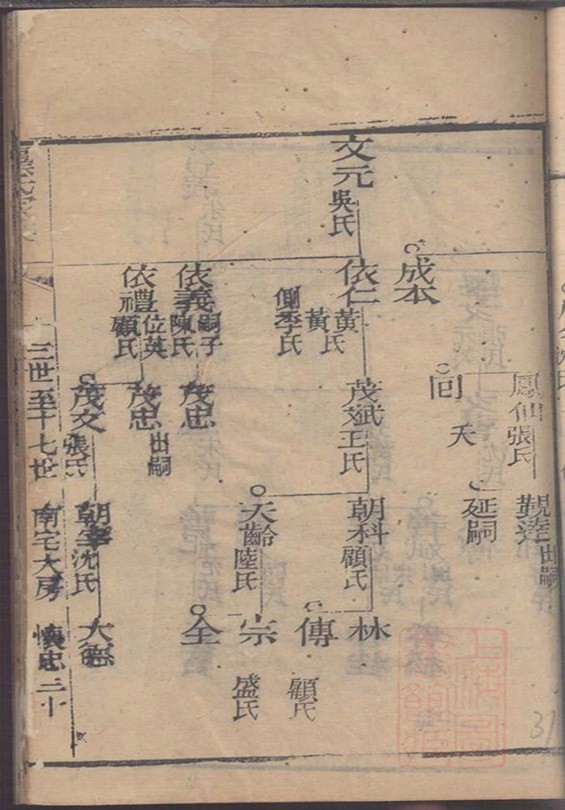 鳳仙張氏
覲達出嗣
延嗣
回夭
成本
文元吳氏
依仁黃氏
黃氏
側季氏
茂斌王氏
朝科顧氏
林
傳顧氏
天齡陸氏
宗盛氏
全
依義嗣子
陳氏
茂忠
依禮位英
顧氏
茂忠出嗣
茂文張氏
朝宰沈氏
大德
三世至十七世
南宅大房
懷忠二十
31